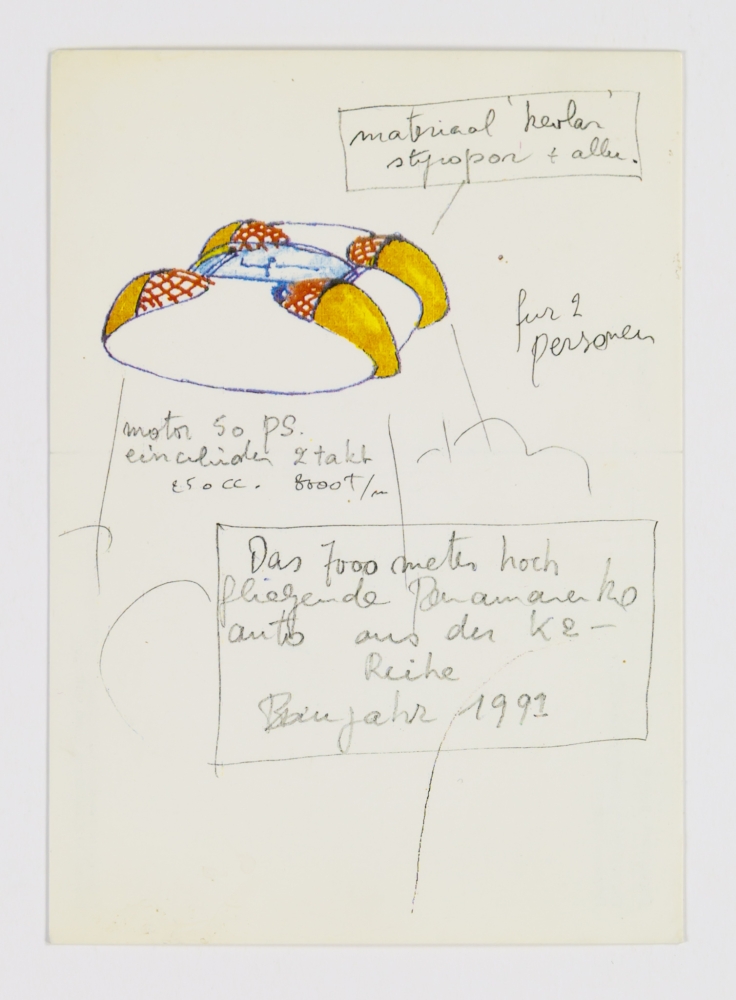 materiaal 'kevlar'
styropor + allu.
fur 2
personen
motor 50 PS.
eincilinder 2 takt
250 cc. 8000T/m
Das 7000 meter hoch
fliegende Panamarenko
auto aus der K2-
Reihe
Baujahr 1991